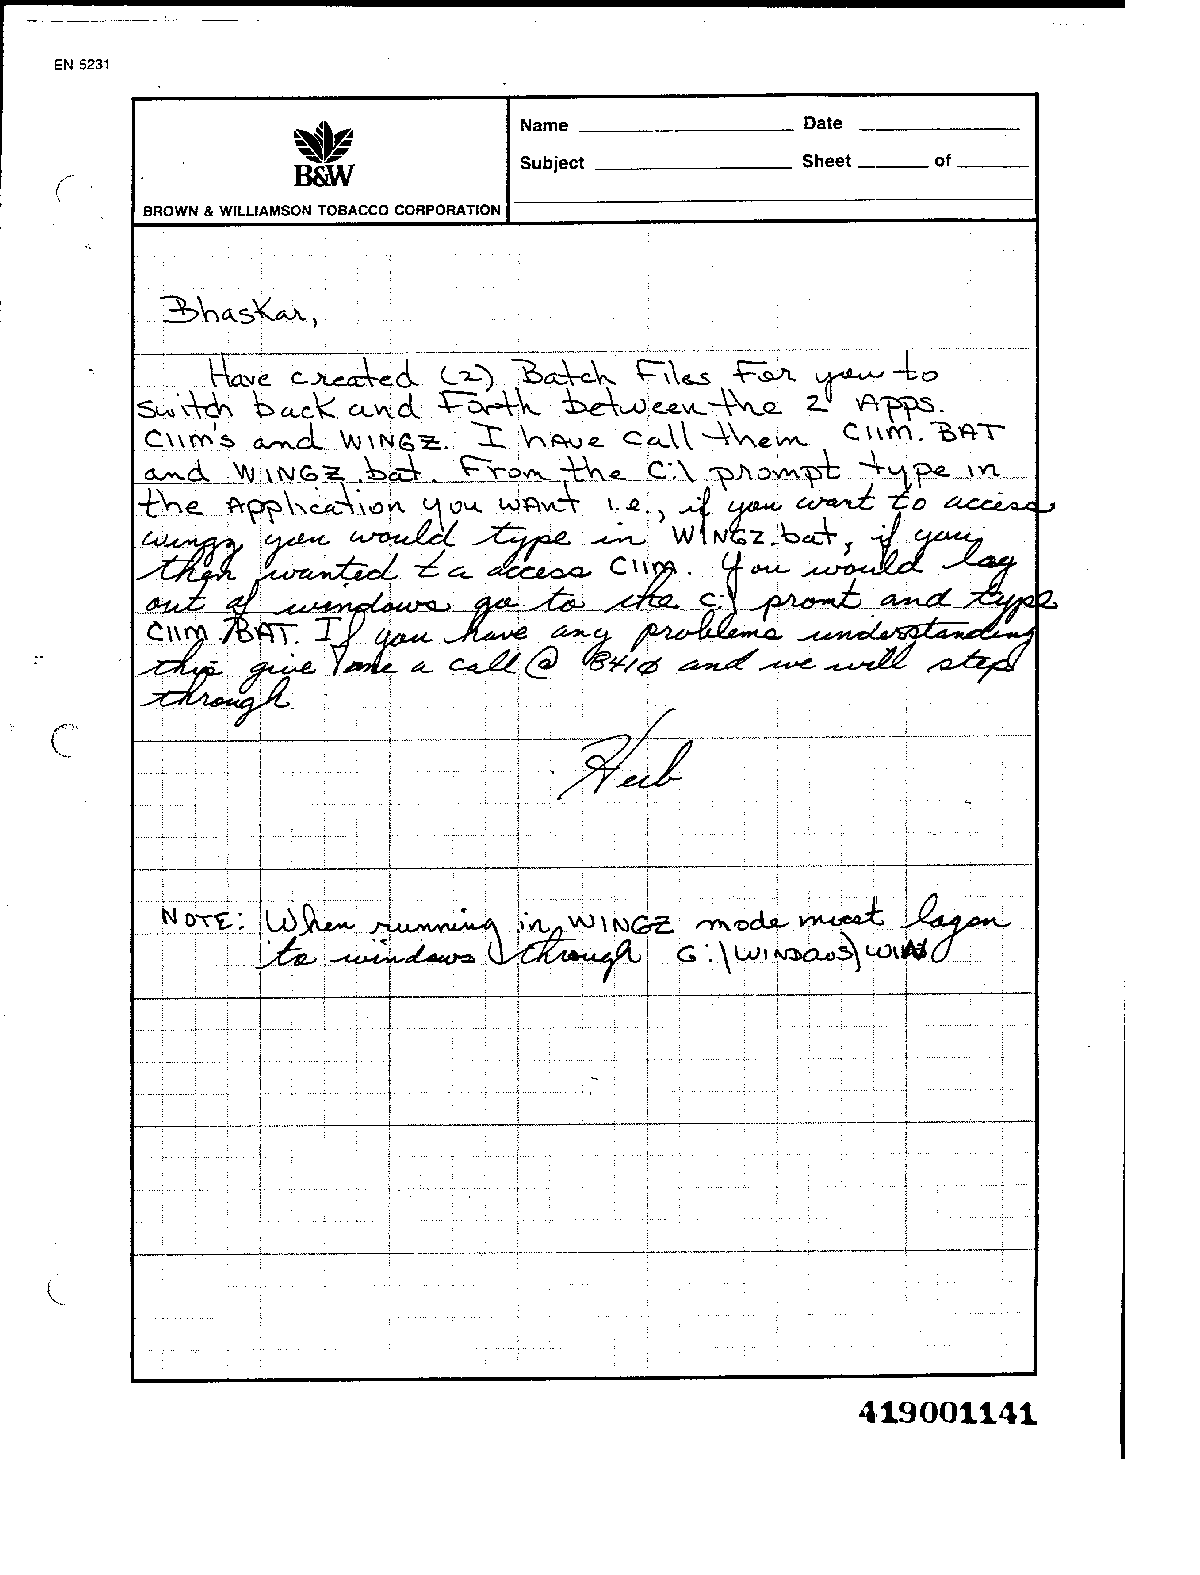 EN 5231
Name Date
B&W
Subject Sheet of
BROWN & WILLIAMSON TOBACCO CORPORATION
Bhaskar,
Have created (2) Batch Files For you to
switch back and Forth between the 2 Apps.
CIIM's and WINGZ. I have call them CIIM.BAT
and WINGZ.bat. From the C:\ prompt type in
the Application you want i.e., if you want to access
wingz you would type in WINGZ.bat, if you
then wanted to access CIIM. You would log
out of windows go to the C:\ promt and type
CIIM.BAT. If you have any problems understanding
this give me a call @ 8410 and we will step
through
Herb
NOTE: When running in WINGZ mode must logon
to windows through G:\WINDOWS\WIN
419001141